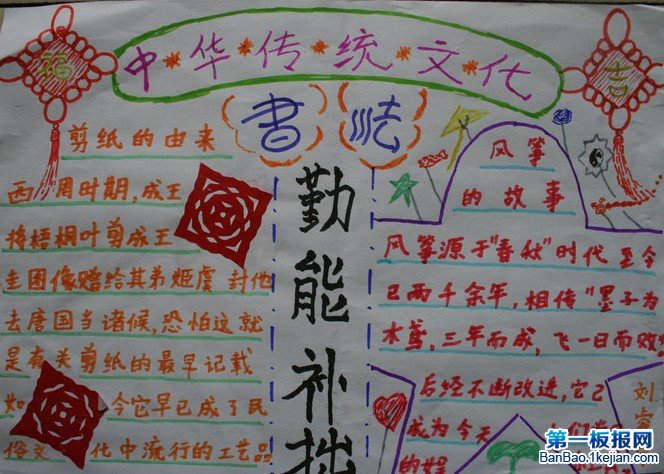 福
中华传统文化
吉
書法
剪纸的由来
西周时期,成王
将梧桐叶剪成王
圭图像赠给其弟姬虞 封他
去唐国当诸候,恐怕这就
是有关剪纸的最早记载
如 今它早已成了民
俗文 化中流行的工艺品
勤能补拙
风筝
的故事
风筝源于"春秋"时代至今
已两千余年,相传"墨子为
木鸢,三年而成,飞一日而败
后经不断改进,它已
成为今天 们
的
刘
第一板报网
BanBao.1kejian.com